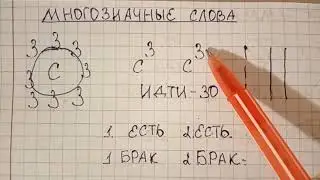 МНОГОЗНАЧНЫЕ СЛОВА
3 3 3 3 3 3 3 3
С
С³ С³
ИДТИ-30
1 ЕСТЬ 2 ЕСТЬ.
1 БРАК 2 БРАК-